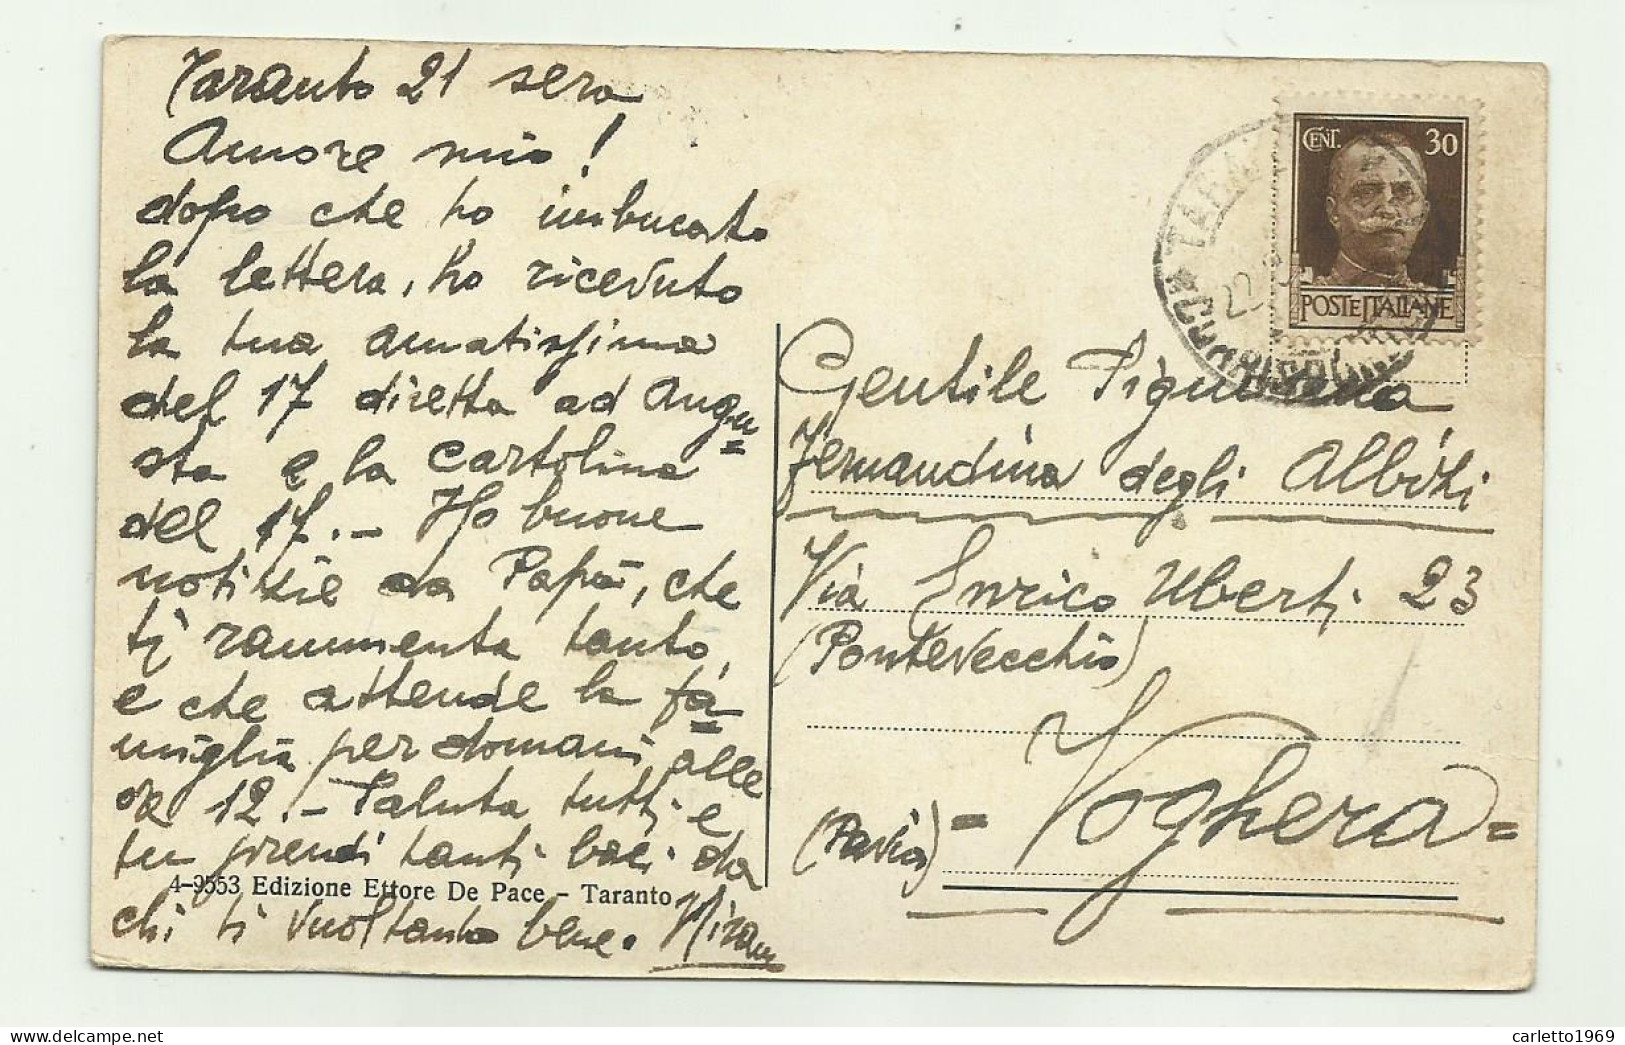 Taranto 21 sera
Amore mio!
dopo che ho imbucato
la lettera, ho ricevuto
la tua amatissima
del 17 diretta ad Augu=
sta e la cartolina
del 17.- Ho buone
notizie da Papà, che
ti rammenta tanto,
e che attende la fa=
miglia per domani alle
ore 12.- Saluta tutti e
tu prendi tanti baci da
chi ti vuol tanto bene.
4-9553 Edizione Ettore De Pace - Taranto
CENT. 30
POSTE ITALIANE
22
Gentile Signorina
Fernandina degli Albizi
Via Enrico Uberti 23
(Pontevecchio)
(Pavia) = Voghera =
carletto1969